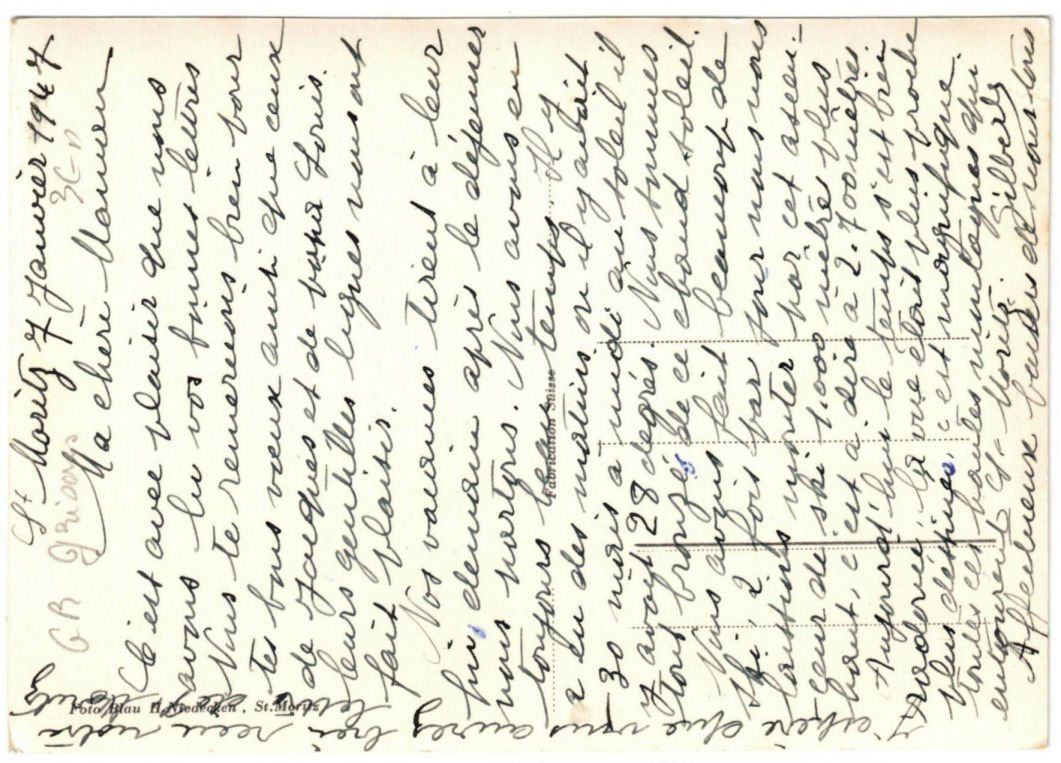 St Moritz 7 Janvier 1947
GR Grisons
Ma chère Maman
C'est avec plaisir que nous
avons lu vos bonnes lettres
Nous te remercions bien pour
tes bons voeux ainsi que ceux
de Jacques et de Louis.
leurs gentilles lignes nous ont
fait plaisir.
Nos vacances tirent à leur
fin, demain après le déjeuner
nous partons. Nous avons eu
toujours beau temps. Il y
a eu des matins où il y avait
30 mais à midi au soleil il
y avait 28 degrés. Nous sommes
tout bronzé de ce chaud soleil.
Nous avons fait beaucoup de
ski, 2 fois par jour nous nous
laissions monter par cet ascen-
ceur de ski 1.000 mètres plus
haut, c'est à dire à 2.700 mètres
Aujourd'hui le temps s'est bien
la vue était plus
toutes ces hautes montagnes qui
entourent St-Moritz. c'est magnifique.
Affectueux baisers de nous tous
Gilbert
J'espère que vous aurez bien reçu notre
Foto Blau H. Niedecken, St. Moritz
Fabrication Suisse